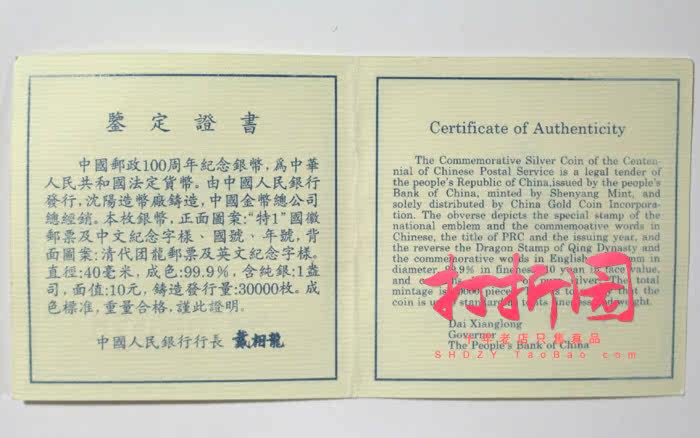 鉴定證書
中國郵政100周年紀念銀幣，爲中華
人民共和國法定貨幣。由中國人民銀行
發行，沈陽造幣廠鑄造，中國金幣總公司
總經銷。本枚銀幣，正面圖案：“特1”國徽
郵票及中文紀念字樣、國號、年號，背
面圖案：清代团龍郵票及英文紀念字樣。
直徑：40毫米，成色：99.9%，含純銀：1盎
司，面值：10元，鑄造發行量：30000枚。成
色標准，重量合格，謹此證明。
中國人民銀行行長 戴相龍
Certificate of Authenticity
The Commemorative Silver Coin of the Centen-
nial of Chinese Postal Service is a legal tender of
the people's Republic of China,issued by the people's
Bank of China, minted by Shenyang Mint, and
solely distributed by China Gold Coin Incorpora-
tion. The obverse depicts the special stamp of the
national emblem and the commemoative words in
Chinese, the title of PRC and the issuing year, and
the reverse the Dragon Stamp of Qing Dynasty and
the commemorative words in English. in
diameter, 99.9% in fineness, 10 yuan in face value,
and silver. The total
mintage is pieces. is to that the
coin is up to standard in its fineness and weight.
Dai Xianglong
Governer
The People's Bank of China
打折园
十年老店只售真品
SHDZY.TaoBao.com